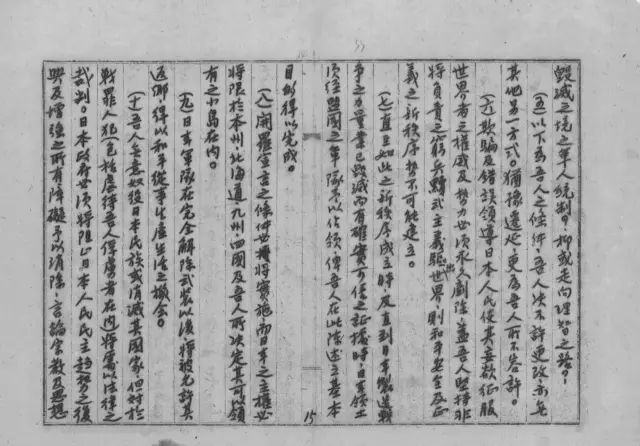 毀滅之境之軍人統制？抑或走向理智之路？
（五）以下為吾人之條件，吾人決不許更改，亦無
其他另一方式。猶豫遷延，更為吾人所不容許。
（六）欺騙及錯誤領導日本人民使其妄欲征服
世界者之權威及勢力必須永久剷除。蓋吾人堅持非
將負責之窮兵黷武主義驅出世界，則和平安全及正
義之新秩序勢不可能建立。
（七）直至如此之新秩序成立時，及直到日本製造戰
爭之力量業已毀滅而有確實可信之証據時，日本領土
須經盟國之軍隊予以佔領，俾吾人在此陳述之基本
目的得以完成。
（八）開羅宣言之條件必將實施，而日本之主權必
將限於本州北海道九州四國及吾人所決定其可以領
有之小島在內。
（九）日本軍隊在完全解除武裝以後，將被允許其
返鄉，得以和平從事生產生活之機會。
（十）吾人無意奴役日本民族或消滅其國家，但對於
戰罪人犯，包括虐待吾人俘虜者在內，將處以法律之
裁判。日本政府必須將阻止日本人民民主趨勢之復
興及增強之所有障礙予以消除，言論宗教及思想
15